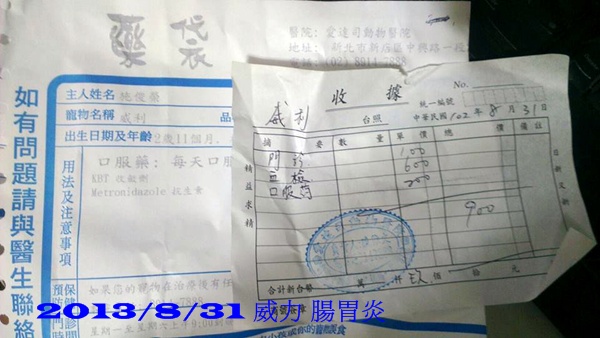 藥袋
醫院: 愛達司動物醫院
地址: 新北市新店區中興路一段
(02) 8911-7888
如有問題請與醫生聯絡
主人姓名 施俊榮
寵物名稱 威利
出生日期及年齡 2歲11個月
用法及注意事項
口服藥: 每天口服
Metronidazole 抗生素
如果您的寵物在治療後有任
星期一至星期六上午9:00到
收據
No.
統一編號
威利 台照
中華民國102年8月31日
摘要 數量 單價 總價 備註
門診 100
血檢 600
口服药 200
900
精益求精
日新又新
合計新台幣 萬 仟 玖 佰 拾 元
2013/8/31 威力 腸胃炎